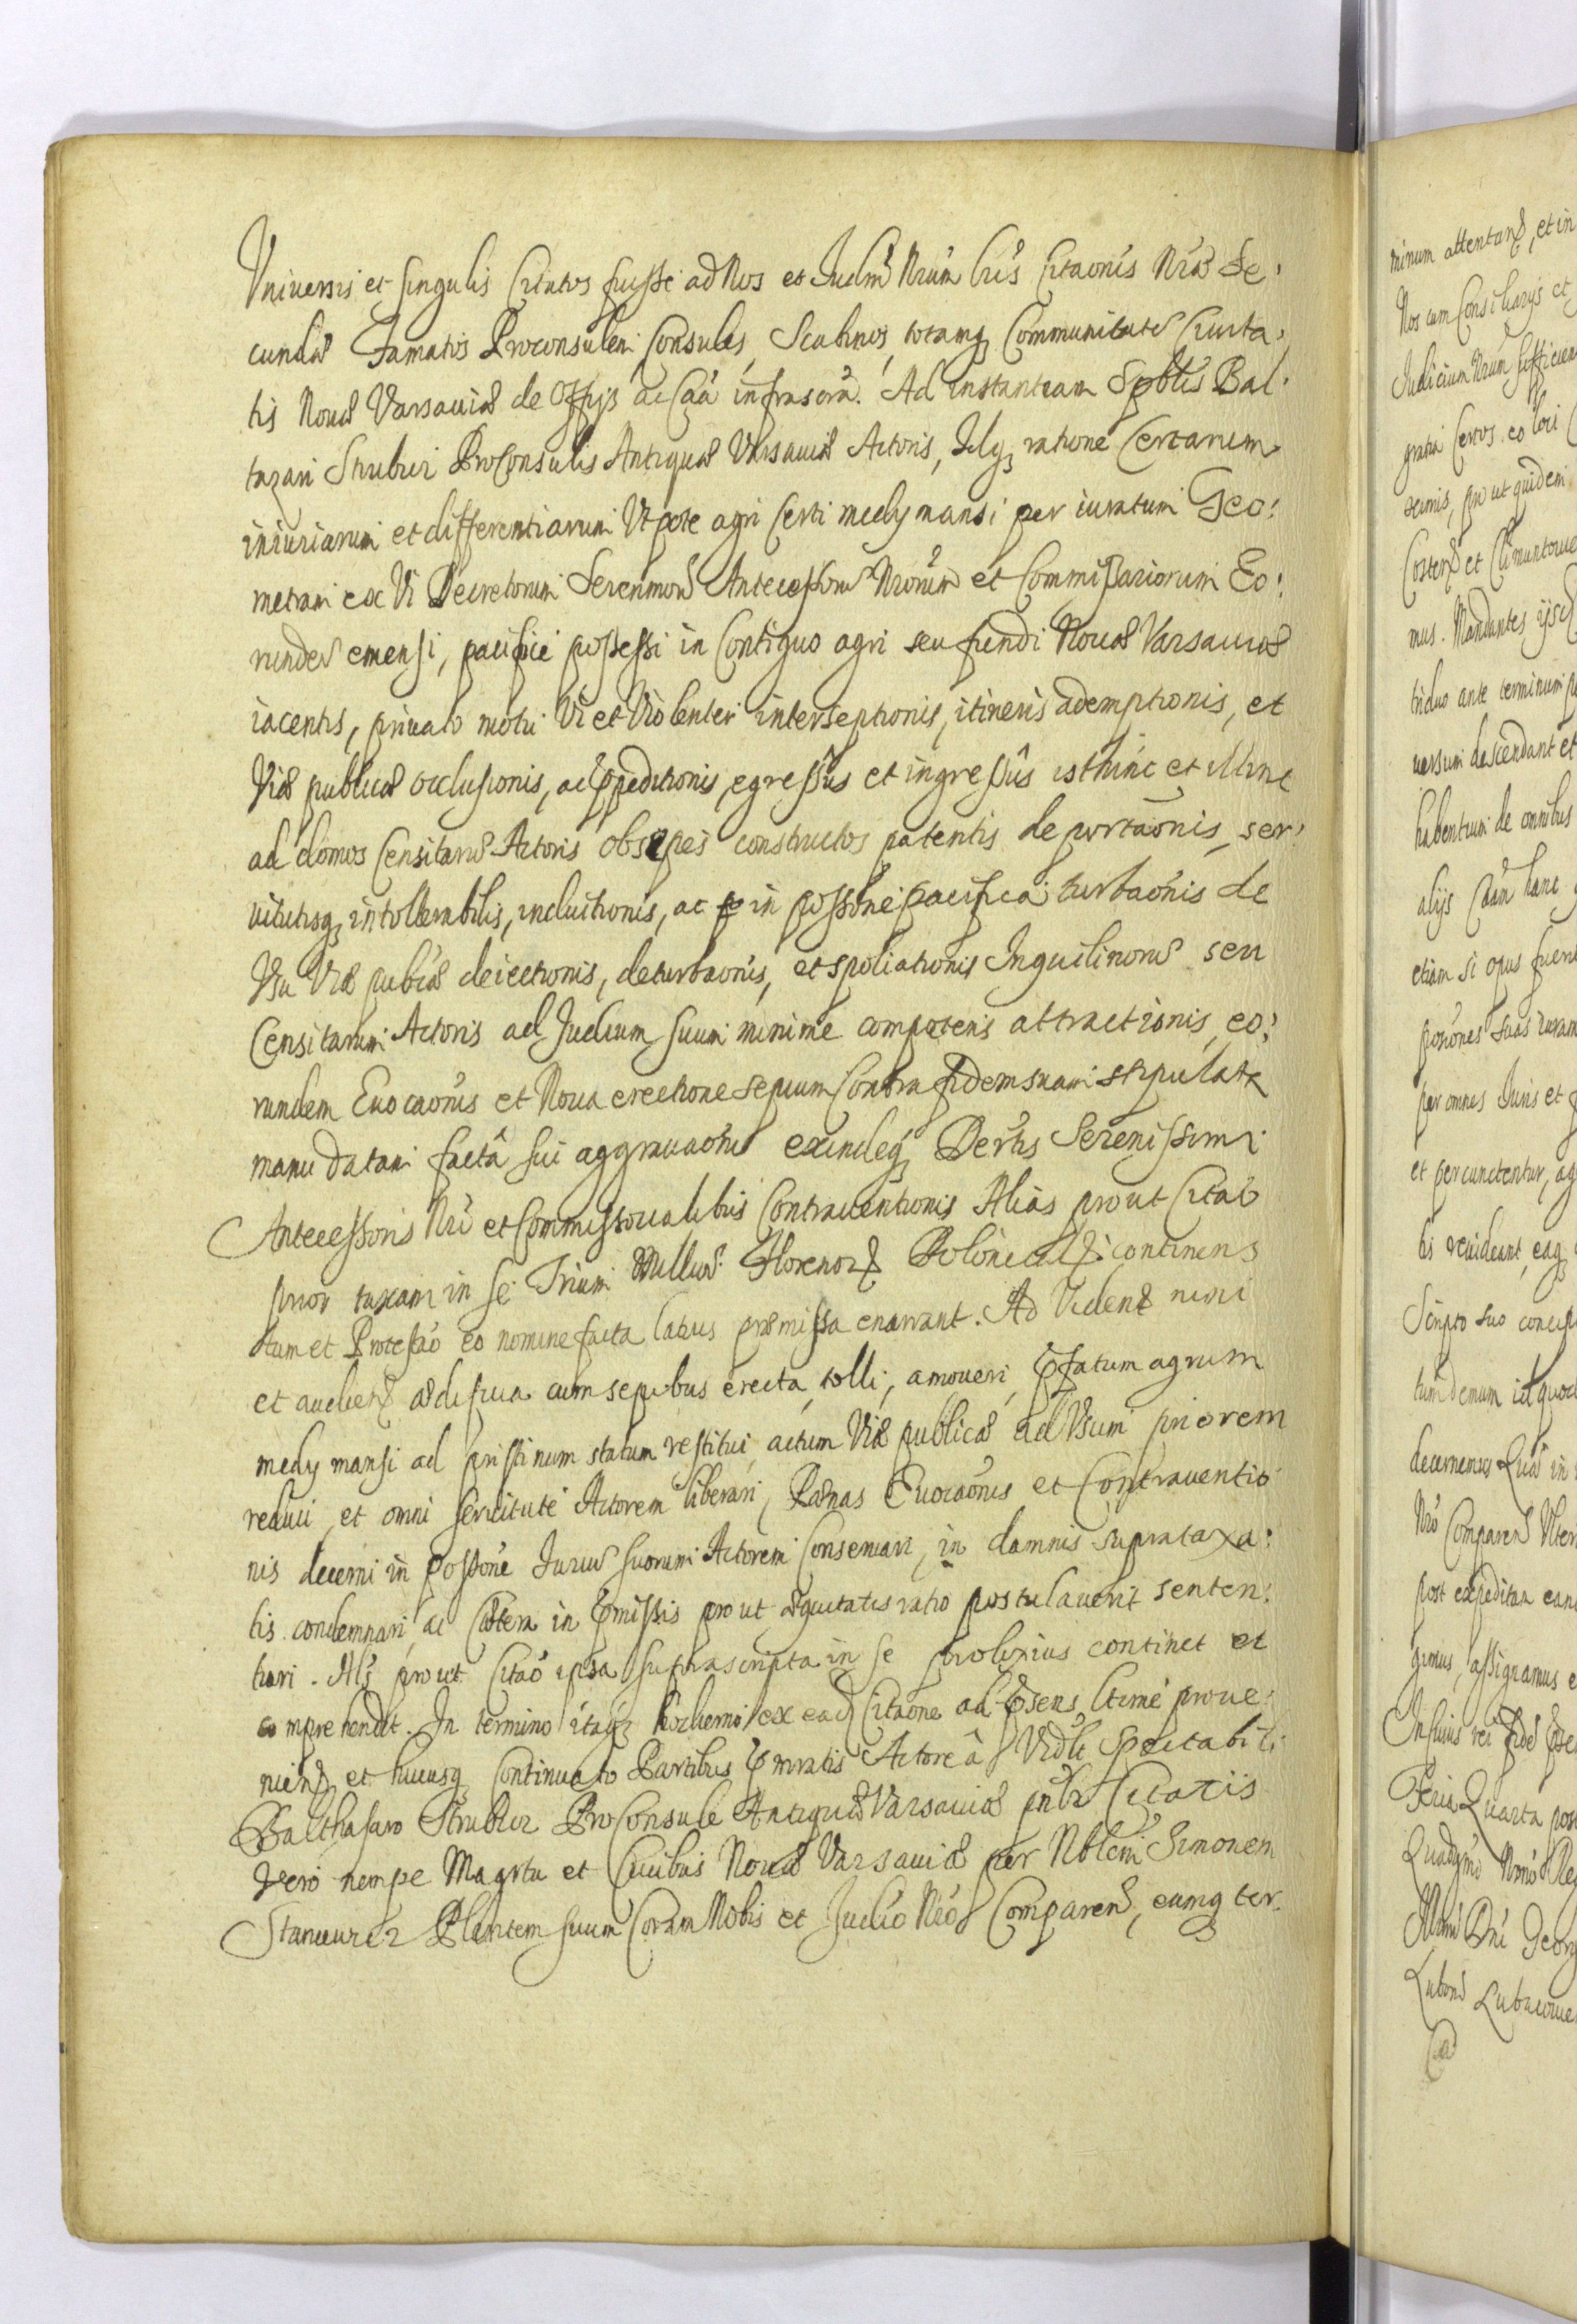 Vniuersis et singulis Citatos fuisse ad Nos et Judm̃ Nrũm lris̃ Citaõnis Nr̃æ Se:
cundæ Famatos Proconsulem Consules, Scabinos, totamq3 Communitatẽ Ciuita:
tis Nouæ Varsauiæ de Offijs ac Caã infrascrã. Ad instantiam Spblis Bal:
tazari Strubicz ProConsulis Antiquæ Varsauiæ Actoris, Idq3 ratione Certarum
iniuriarum et differentiarum Vtpote agri Certi medij mansi per iuratum Geo:
metram ex Vi Decretorum Serenmorũ Antecessorũ Nrorum et Commissariorum Eo:
rundẽ emensi, pacifice possessi in Contiguo agri seu fundi Nouæ Varsauiæ
iacentis, priuato motu Vi et Violenter interseptionis, itineris ademptionis, et
Viæ publicæ occlusionis, ac ꝑpeditionis, egressûs et ingressûs isthinc et illinc
ad domos Censitarũ Actoris obsepes constructos patentis deportaõnis, ser:
uitutisq3 intollerabilis, inductionis, ac in possõne pacifica turbaõnis de
Vsu Viæ publcæ deiectionis, deturbaõnis, et spoliationis Inquilinorũ seu
Censitarum Actoris ad Judicium suum minime competens attractionis, eo:
rundem Euocaõnis et Noua erectione sepium Contra fidem suam stipulata
manu datam factâ sui aggrauaõne exindeq3 Decrtis Serenissimi
Antecessoris Nrĩ et Commissorialibus Contrauentionis Alias prout Citaõ
prior taxam in se Trium Millium Florenorũ Polonicalium continens
tum et Protestaõ eo nomine facta latius præmissa enarrant. Ad Videnđ
et audienđ ædificia cum sepibus erecta, tolli, amoueri, ꝑfatum agrum
medij mansi ad pristinum statum restitui, actum Viæ publicæ ad Vsum priorem
reduci, et omni seruitute Actorem liberari, Pænas Euocaõnis et Contrauentio:
nis decerni in possõne Jurium suorum Actorem Conseruari, in damnis suprataxa:
tis condemnari, ac Cætera in ꝑmissis prout æquitatis ratio postulauerit senten:
tiari. Als prout Citaõ ipsa suprascripta in se prolixius continet et
comprehendit. In termino itaq3 hodierno ex eađ Citaõne ad ꝑsens ltime proue:
nienđ et hucusq3 Continuato Partibus ꝑmratis Actore â Vidlt Spectabili
Balthasaro Strubicz ProConsule Antiquæ Varsauiæ pnltr Citatis
Vero nempe Magrtu et Ciuibus Nouæ Varsauiæ per Nblem Simonem
Plentem suum Coram Nobis et Judicio Nrõ Comparenđ, eumq3 ter:
minum attentanđ, et in
Nos cum Consiliarijs et
Judicium Nrum sufficien
gratia Certos eo loci
prout quidem
mus. Mandantes ijsd
triduo ante terminum
descendant et
habentium de omnibus
alijs Caam hanc
etiam si opus fuerit
suas
per omnes Juris et
et percunctentur, ag
bis reuideant, eaq3
Scripto suo concep
tum demum id quod
decernemus Quâ in
Nrõ Comparenđ Vlter
post expeditam eanđ
gimus, assignamus e
In cuius rei fidẽ
Feria Quarta post
Dni Georg
Ca